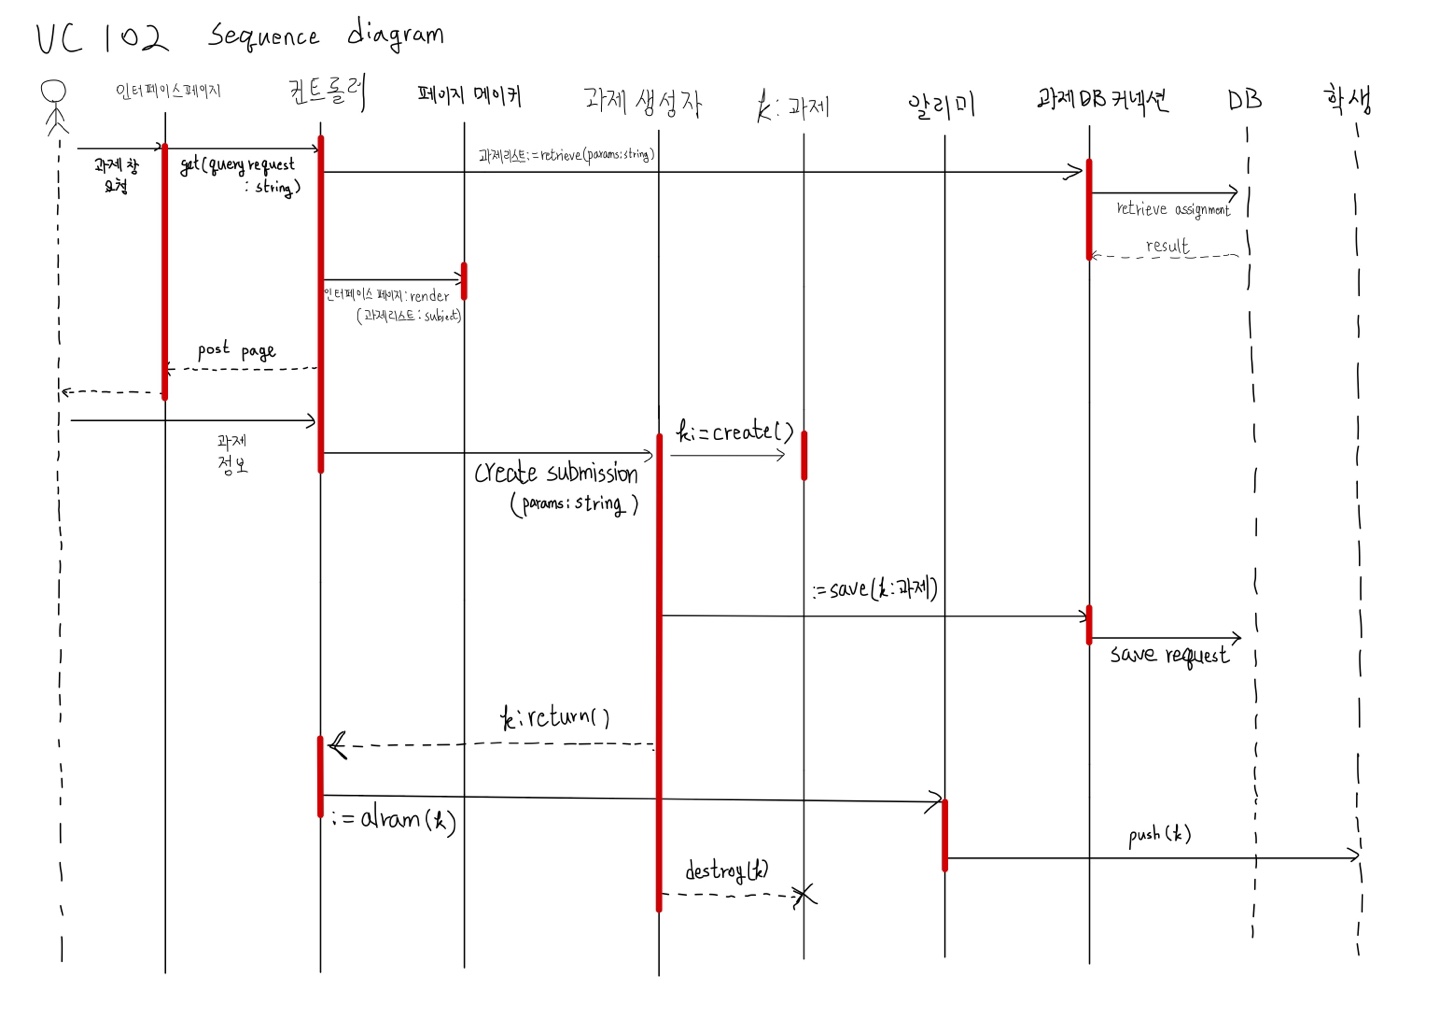 UC 102 sequence diagram
인터페이스페이지
컨트롤러
페이지 메이커
과제 생성자
k: 과제
알리미
과제 DB 커넥션
DB
학생
과제 창
요청
get(query request
: string)
과제리스트:=retrieve(params:string)
retrieve assignment
result
인터페이스 페이지:render
(과제리스트:subject)
post page
과제
정보
create submission
(params: string)
k:=create()
:=save(k:과제)
save request
k:return()
:= alram(k)
push(k)
destroy(k)